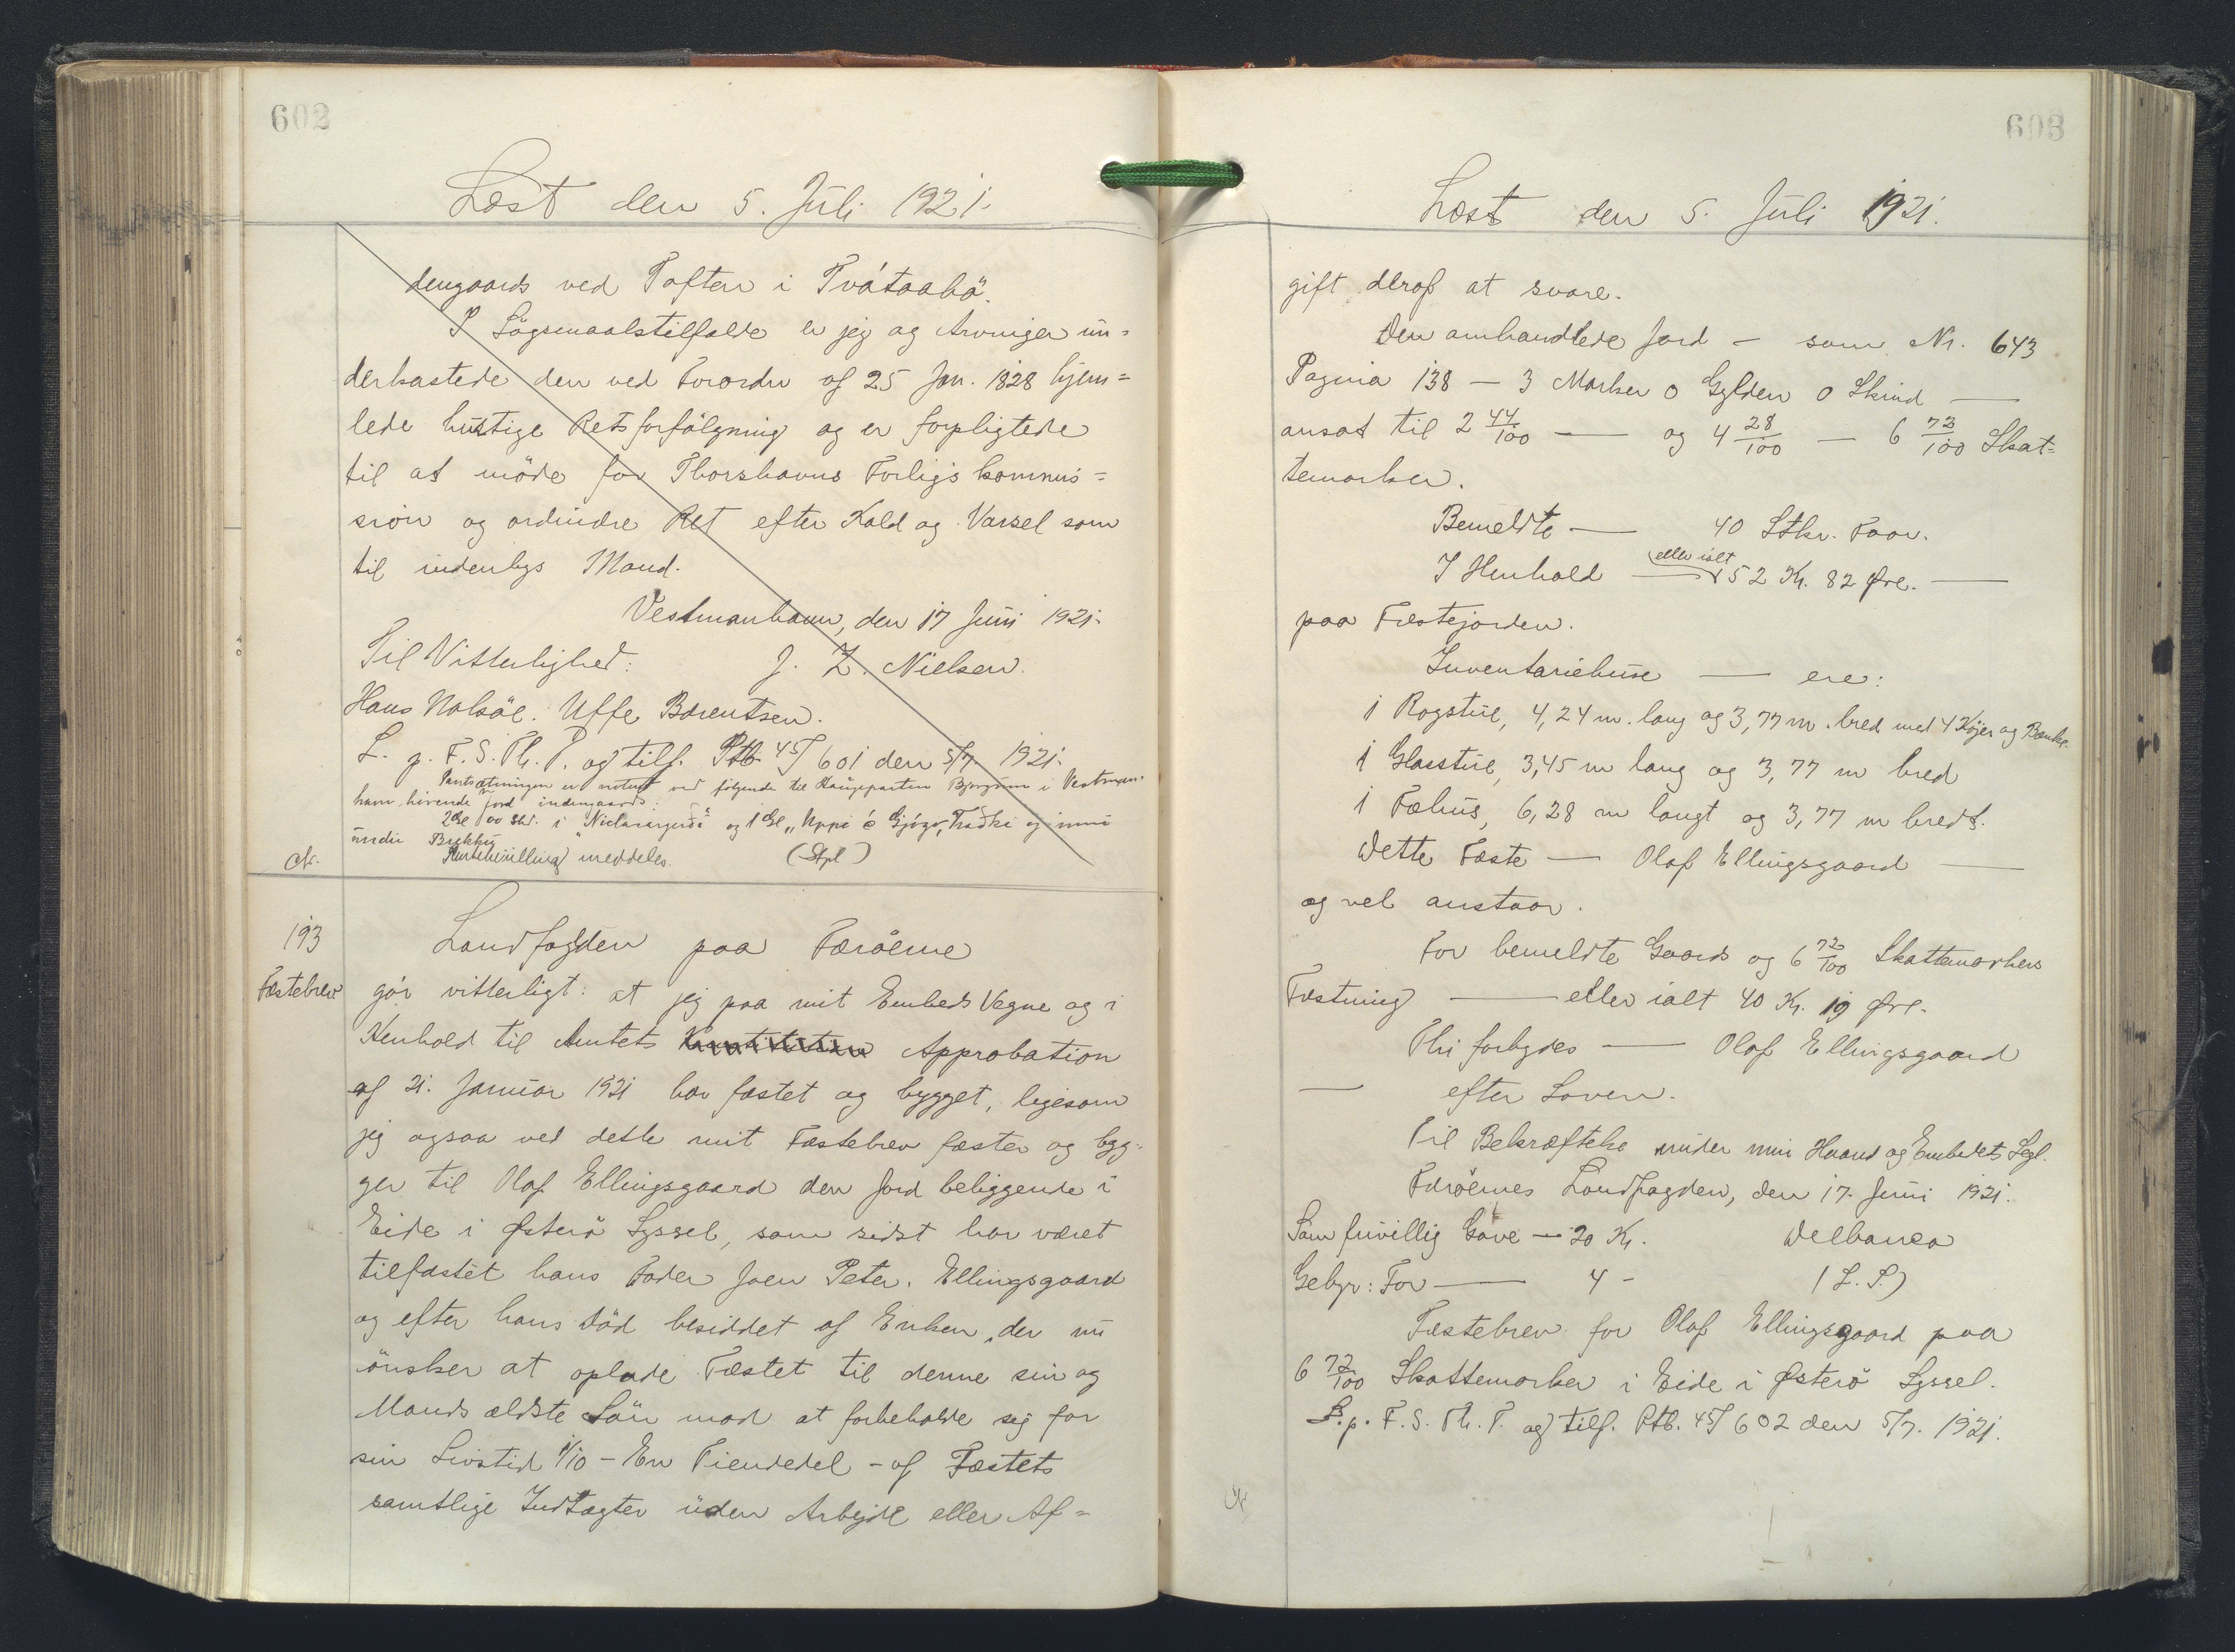 602
Læst den 5. Juli 1921.
dengaards ved Toften i Tvátaabö.
I Lögsmaalstilfælde er jeg og Arvinger un-
derkastede den ved Forordn af 25 Jan. 1828 hjem-
lede hurtige Retsforfölgning og er forpligtede
til at möde for Thorshavns Forligskommis-
sion og ordinære Ret efter Kald og Varsel som
til indenbys Mand.
Vestmanhavn, den 17 Juni 1921.
Til Vitterlighed: J. Z. Nielsen.
Hans Nolsöe. Uffe Bærentsen.
L. p. F. S. Th. P. og tilf. Ptb. 45/601 den 5/7 1921.
Pantsætningen er noteret ved følgende til Kaugeparten Bjorgum i Vestman-
havn hørende Jord indengaards:
2 Gl 00 Skd. i "Niclasargerði" og 1 Gl "Uppi á Gjógv, Tráðki og inni
undir Brekku
Stempelmilling meddeles. (Stpl)
N.
193
Fæstebrev
Landfogden paa Færöerne
gör vitterligt: at jeg paa mit Embeds Vegne og i
Henhold til Amtets Approbation
af 21. Januar 1921 har fæstet og bygget, ligesom
jeg ogsaa ved dette mit Fæstebrev fæster og byg-
ger til Olaf Ellingsgaard den Jord beliggende i
Eide i Østerö Syssel, som sidst har været
tilfæstet hans Fader Joen Peter Ellingsgaard
og efter hans Död besiddet af Enken, der nu
önsker at oplade Fæstet til denne sin og
Mands ældste Sön mod at forbeholde sig for
sin Livstid 1/10 - En Tiendedel - af Fæstets
samtlige Indtægter uden Arbejde eller Af-
603
Læst den 5. Juli 1921.
gift deraf at svare.
Den omhandlede Jord — som Nr. 643
Pagina 138 — 3 Marker 0 Gylden 0 Skind —
ansat til 2 44/100 — og 4 28/100 — 6 72/100 Skat-
temarker.
Bemeldte — 40 Stkr. Faar.
eller ialt
I Henhold — 152 Kr. 82 Øre. —
paa Fæstejorden.
Inventariehuse — ere:
1 Rogstue, 4,24 m. lang og 3,77 m. bred med 4 Køjer og Bænke.
1 Glasstue, 3,45 m lang og 3,77 m bred
1 Fæhus, 6,28 m langt og 3,77 m bredt.
Dette Fæste — Olaf Ellingsgaard —
og vel anstaar.
For bemeldte Gaards og 6 72/100 Skattemarkers
Fæstning — eller ialt 40 Kr. 19 Øre.
Thi forbydes — Olaf Ellingsgaard
— efter Loven.
Til Bekræftelse under min Haand og Embedets Segl.
Færöernes Landfogden, den 17. Juni 1921.
Som frivillig Gave — 20 Kr. Delbanco
Gebyr: For — 4 - (L. S.)
Fæstebrev for Olaf Ellingsgaard paa
6 72/100 Skattemarker i Eide i Østerö Syssel.
L. p. F. S. Th. P. og tilf. Ptb. 45/602 den 5/7. 1921.
N